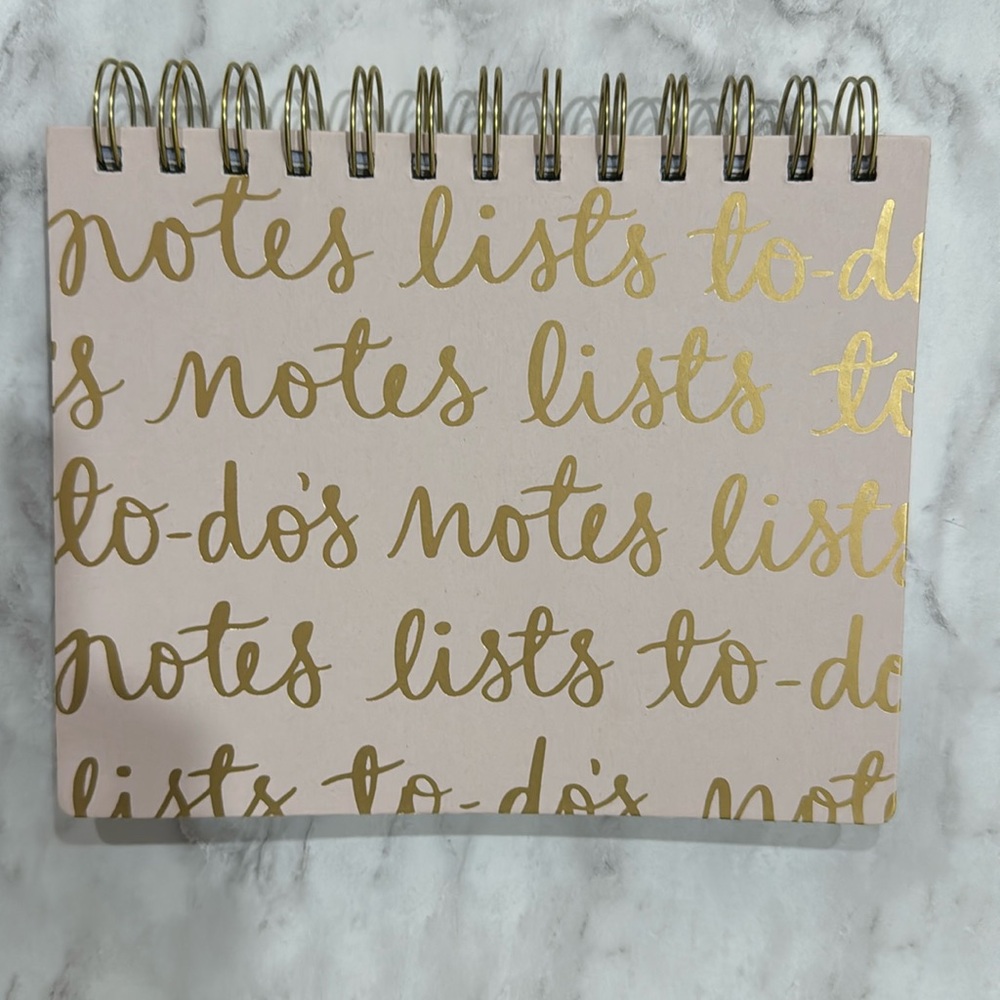 notes lists to-do
s notes lists to
to-do's notes lists
notes lists to-do
lists to-do's note